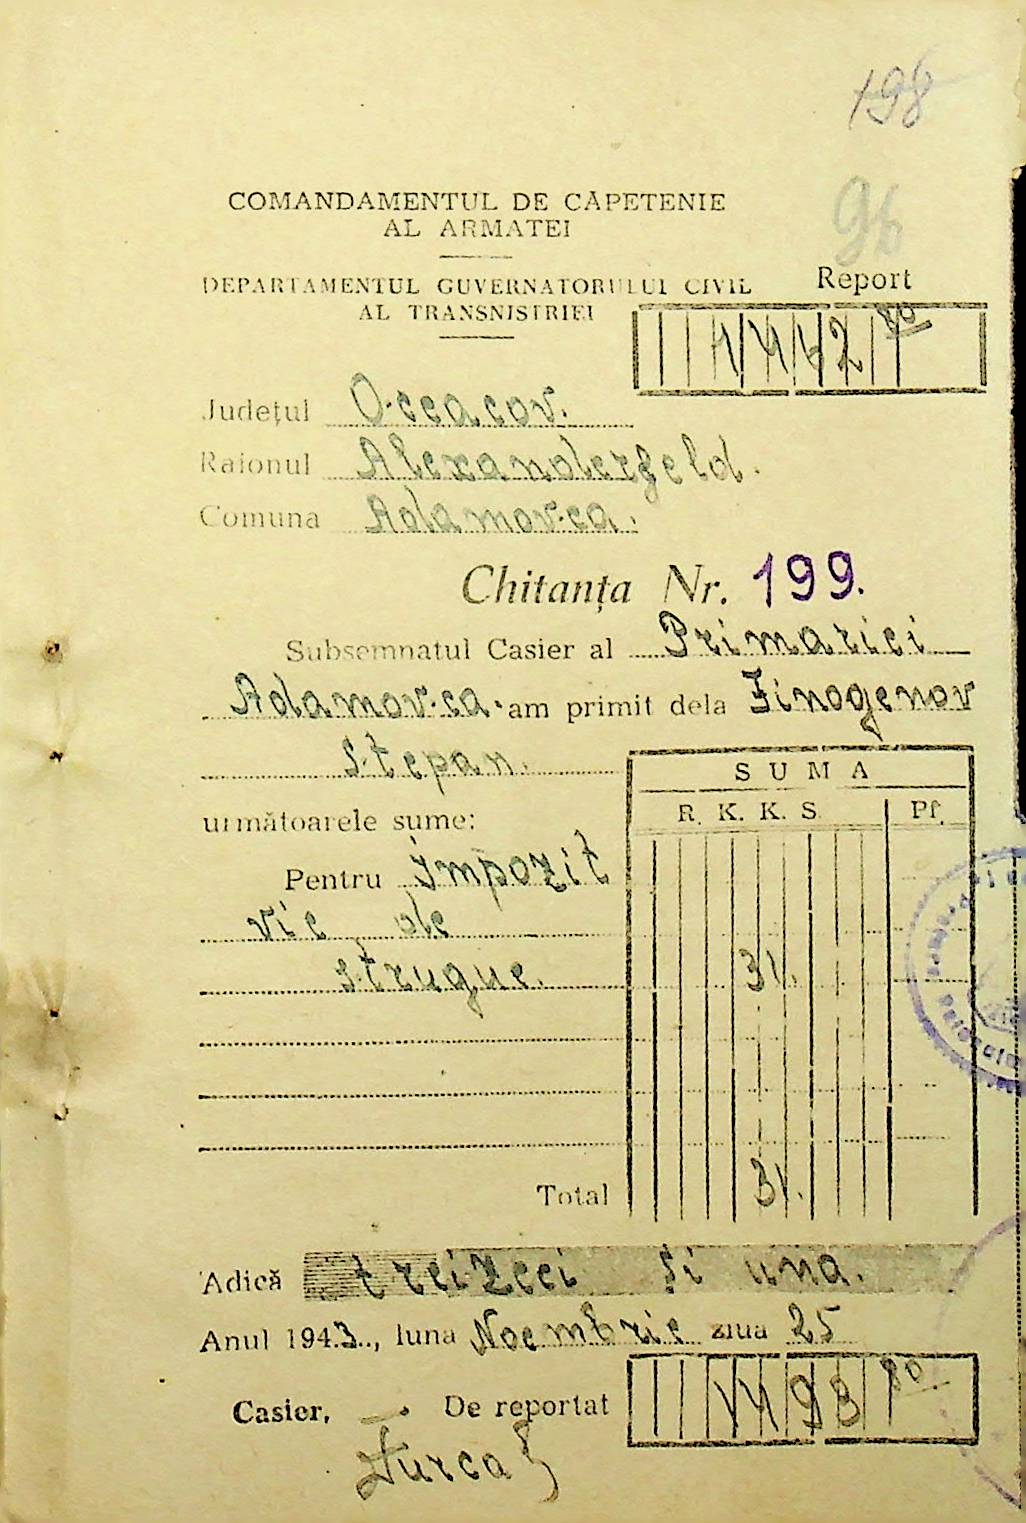 198
96
COMANDAMENTUL DE CĂPETENIE
AL ARMATEI
DEPARTAMENTUL GUVERNATORULUI CIVIL
AL TRANSNISTRIEI
Report
1462 80
Județul Oceacov.
Raionul Alexanderfeld.
Comuna Adamovca.
Chitanța Nr. 199.
Subsemnatul Casier al Primariei
Adamovca. am primit dela Finogenov
Stepan.
SUMA
R. K. K. S. Pf.
următoarele sume:
Pentru impozit
vie de
strugue. 31.
Total 31.
Adică treizeci si una.
Anul 1943., luna Noembrie ziua 25
Casier, De reportat 1493 80